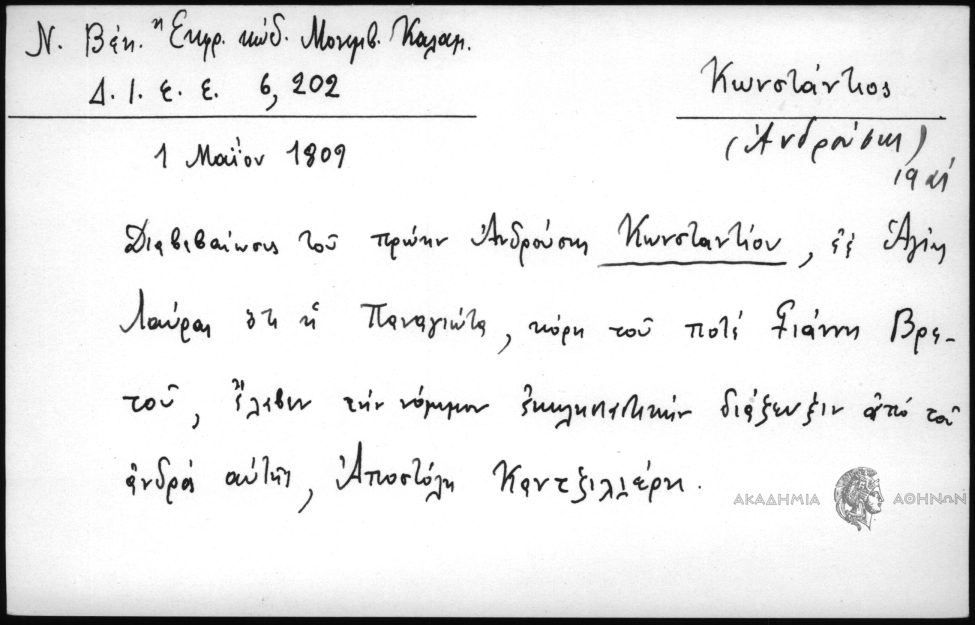 Ν. Βέη. Ἐκφρ. κώδ. Μονεμβ. Καλαμ.
Δ. Ι. Ε. Ε. 6, 202
Κωνστάντιος
(Ἀνδρούσης)
19 αἰ
1 Μαΐου 1809
Διαβεβαίωσις τοῦ πρώην Ἀνδρούσης Κωνσταντίου, ἐξ Ἁγίας
Λαύρας ὅτι ἡ Παναγιώτα, κόρη τοῦ ποτέ Γιάννη Βρε-
τοῦ, ἔλαβεν τήν νόμιμον ἐκκλησιαστικήν διάζευξιν ἀπό τοῦ
ἀνδρός αὐτῆς, Ἀποστόλη Καντζιλιέρη.
ΑΚΑΔΗΜΙΑ ΑΘΗΝΩΝ